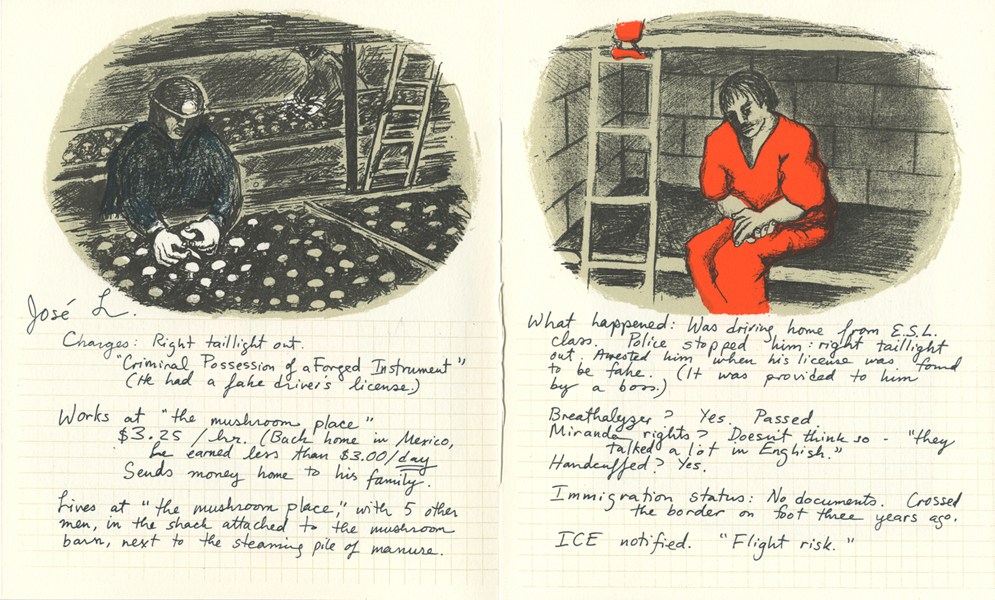 José L.
Charges: Right taillight out.
"Criminal Possession of a Forged Instrument"
(He had a fake driver's license.)
Works at "the mushroom place"
$3.25 /hr. (Back home in Mexico,
he earned less than $3.00/day
Sends money home to his family.
Lives at "the mushroom place," with 5 other
men, in the shack attached to the mushroom
barn, next to the steaming pile of manure.
What happened: Was driving home from E.S.L.
class. Police stopped him: right taillight
out. Arrested him when his license was found
to be fake. (It was provided to him
by a boss.)
Breathalyzer? Yes. Passed
Miranda rights? Doesn't think so - "they
talked a lot in English."
Handcuffed? Yes.
Immigration status: No documents. Crossed
the border on foot three years ago.
ICE notified. "Flight risk."